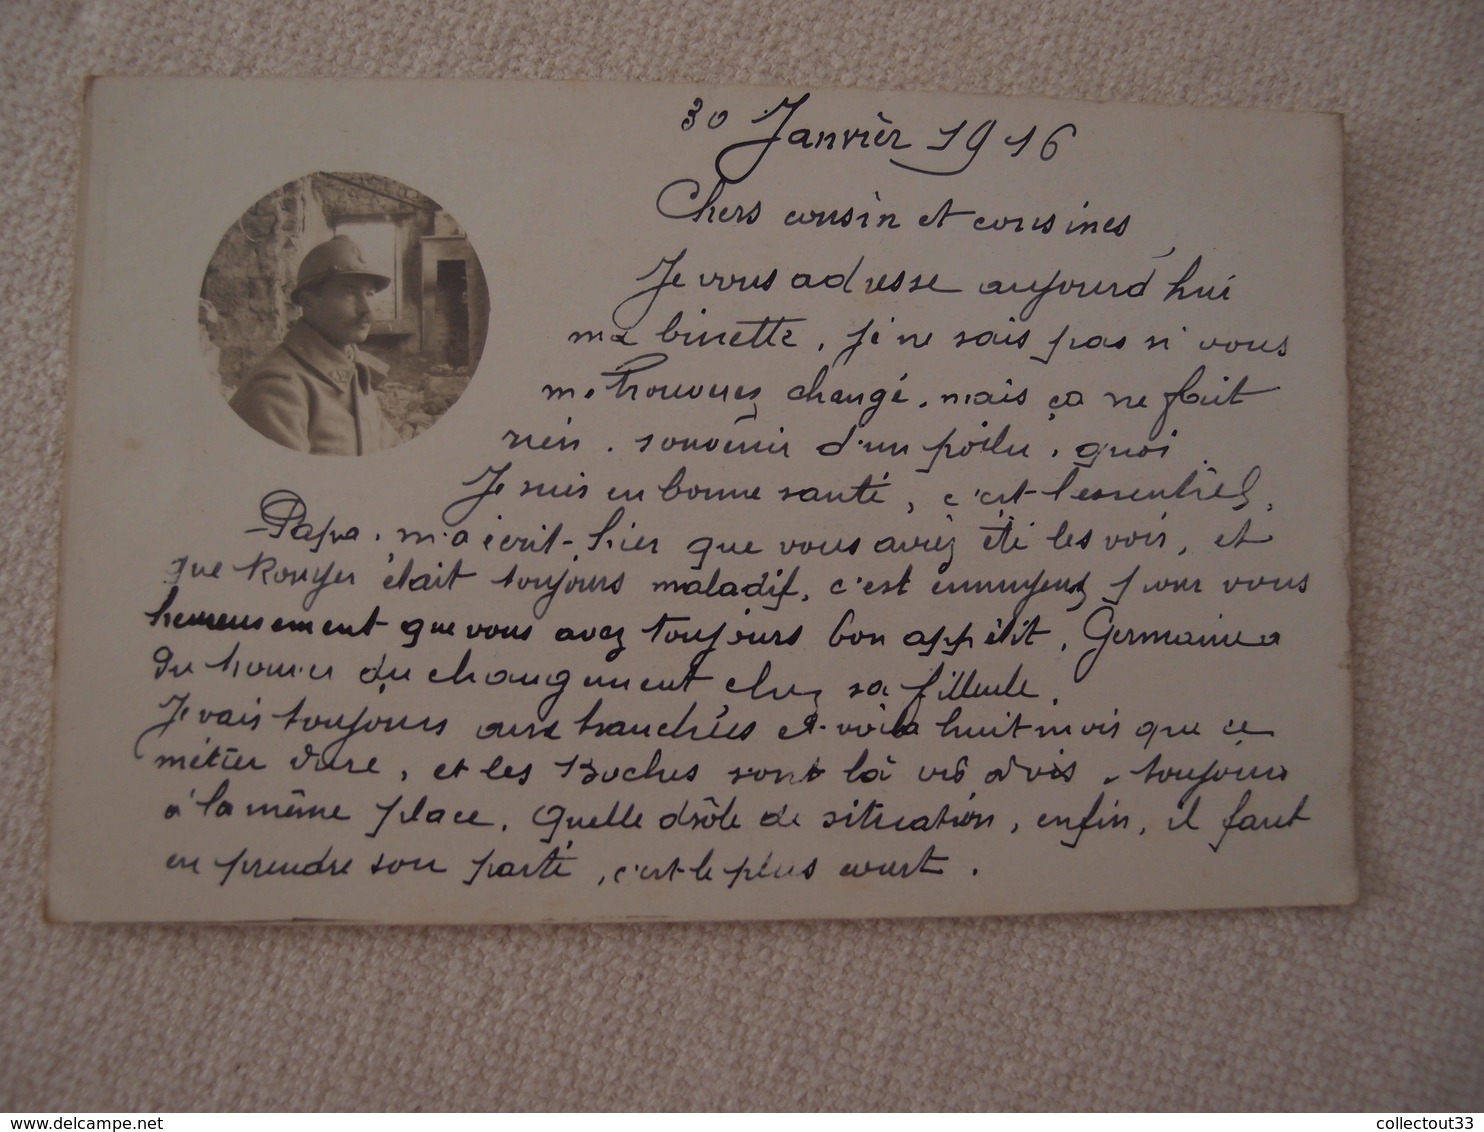 30 Janvier 1916
Chers cousin et cousines
Je vous adresse aujourd'hui
ma binette, je ne sais pas si vous
me trouverez changé, mais ça ne fait
rien. souvenir d'un poilu, quoi.
Je suis en bonne santé, c'est l'essentiel,
Papa, m'a écrit hier que vous aviez été les voir, et
que Rouyer était toujours maladif, c'est ennuyeux pour vous
heureusement que vous avez toujours bon appétit, Germaine a
du trouver du changement chez sa filleule.
Je vais toujours aux tranchées et voila huit mois que ce
métier dure, et les Boches sont là vis à vis, toujours
à la même place. Quelle drôle de situation, enfin, il faut
en prendre son parti, c'est le plus court.
delcampe.net
collectout33